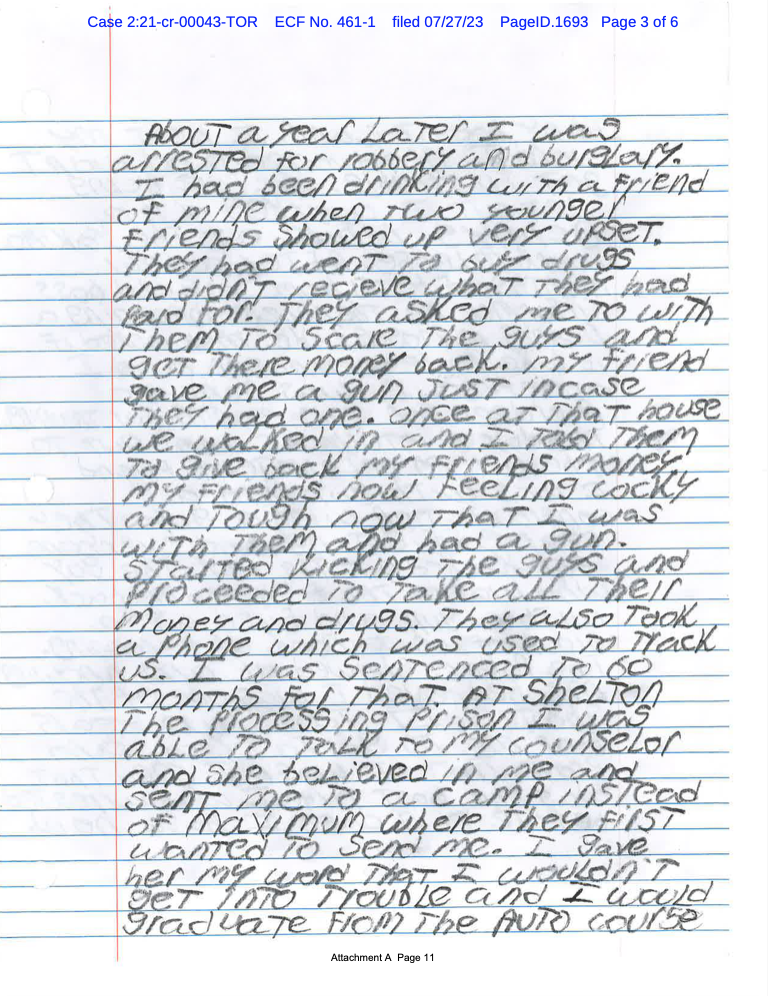 Case 2:21-cr-00043-TOR    ECF No. 461-1    filed 07/27/23    PageID.1693    Page 3 of 6
About a year later I was
arrested for robbery and burglary.
I had been drinking with a friend
of mine when two younger
friends showed up very upset.
They had went to buy drugs
and didn't recieve what they had
paid for. They asked me to with
them to scare the guys and
get there money back. my friend
gave me a gun just incase
they had one. once at that house
we walked in and I told them
to give back my friends money
my friends now feeling cocky
and tough now that I was
with them and had a gun.
Started kicking the guys and
proceeded to take all their
money and drugs. They also took
a phone which was used to track
us. I was sentenced to 60
months for that. At Shelton
the processing prison I was
able to talk to my counselor
and she believed in me and
sent me to a camp instead
of maximum where they first
wanted to send me. I gave
her my word that I wouldn't
get into trouble and I would
graduate from the auto course
Attachment A  Page 11